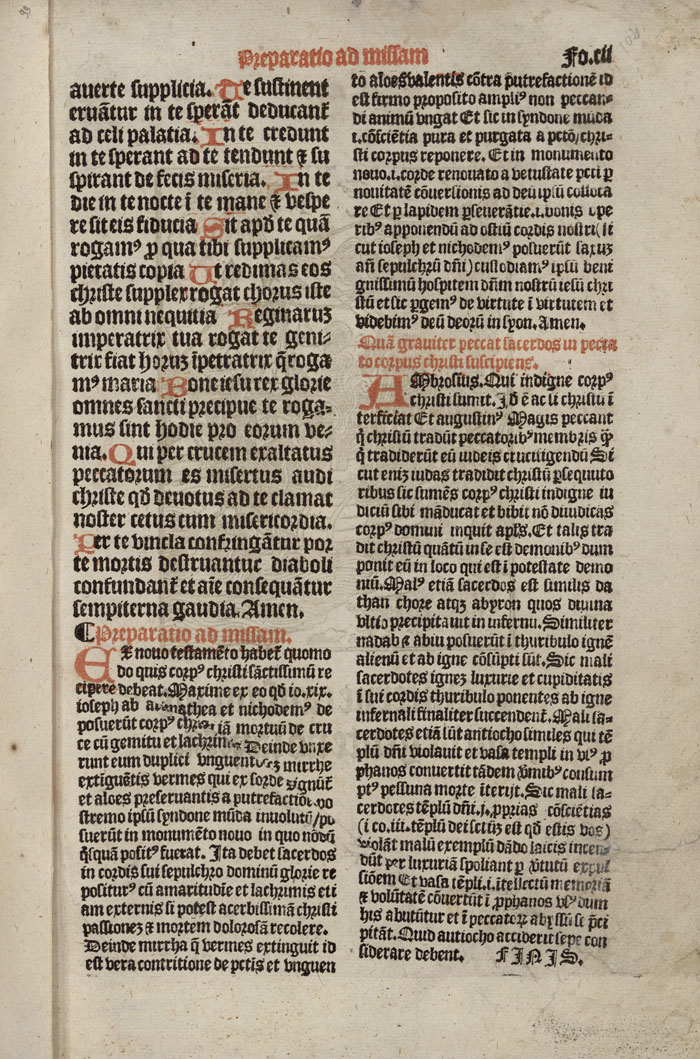 Preparatio ad missam
Fo.cii
auerte supplicia. Te sustinent
eruãtur in te sperãt deducanť
ad celi palatia. In te credunt
in te sperant ad te tendunt ⁊ su
spirant de fecis miseria. In te
die in te nocte ĩ te mane ⁊ vespe
re sit eis fiducia Sit apđ te quã
rogamꝰ ꝓ qua tibi supplicamꝰ
pietatis copia Ut redimas eos
christe supplex rogat chorus iste
ab omni nequitia Reginaruꝫ
imperatrix tua rogat te geni-
trix fiat horuꝫ ĩpetratrix q̃ roga
mꝰ maria Bone iesu rex glorie
omnes sancti precipue te roga-
mus sint hodie pro eorum ve-
nia. Qui per crucem exaltatus
peccatorum es misertus audi
christe qđ deuotus ad te clamat
noster cetus cum misericordia.
Per te vincla confringãtur por
te mortis destruantur diaboli
confundanť et aĩe consequãtur
sempiterna gaudia. Amen.
¶ Preparatio ad missam.
Ex nouo testamẽto habeť quomo
do quis corpꝰ christi sãctissimũ re
cipere debeat. Maxime ex eo qđ io.xix.
ioseph ab arimathea et nichodemꝰ de
posuerũt corpꝰ iã mortuũ de cru
ce cũ gemitu et Deinde vnxe
runt eum duplici mirrhe
extĩguẽtis vermes qui ex sorde
et aloes preseruantis a putrefactiõe
stremo ipsũ syndone mũda inuolutũ
suerũt in monumẽto nouo in quo nõdũ
q̃sꝗuam positꝰ fuerat. Ita debet sacerdos
in cordis sui sepulchro dominũ glorie re
positurꝰ cũ amaritudĩe et lachrimis eti
am externis si potest acerbissimã christi
passionẽ ⁊ mortem dolorosã recolere.
Deinde mirrha q̃ vermes extinguit id
est vera contritione de pctĩs et vnguen
to aloes valentis cõtra putrefactionẽ id
est firmo proposito ampliꝰ non peccan-
di animũ vngat Et sic in syndone mũda
.i. cõsciẽtia pura et purgata a pctõ/chri-
sti corpus reponere. Et in monumẽto
nouo.i.corde renouato a vetustate pcti ꝑ
nouitatẽ cõuersionis ad deũ ipsũ colloca
re Et ꝑ lapidem ꝑseuerãtie.i.bonis ope
ribꝰ apponendũ ad ostiũ cordis nostri(si
cut ioseph et nichodemꝰ posuerũt saxuꝫ
añ sepulchrũ dñi)custodiamꝰ ipsũ beni
gnissimũ hospitem dñm nostrũ iesũ chri
stũ et sic ꝑgemꝰ de virtute ĩ virtutem et
videbimꝰ deũ deorũ in syon. Amen.
Quã grauiter peccat sacerdos in pecca
to corpus christi suscipiens.
AMbrosius. Qui indigne corpꝰ
christi sumit. Iđ ẽ ac si christũ ĩ
terficiat Et augustinꝰ Magis peccant
q̃ christũ tradũt peccatoribꝰ membris ꝙ̃
q̃ tradiderũt eũ iudeis crucifigendũ Si
cut enĩꝫ iudas tradidit christũ ꝑsequuto
ribus sic sumẽs corpꝰ christi indigne iu
diciũ sibi mãducat et bibit nõ diiudicãs
corpꝰ domini inquit apls̃. Et talis tra
dit christũ quãtũ in se est demonibꝰ dum
ponit eũ in loco qui est ĩ potestate demo
niũ. Malꝰ etiã sacerdos est similis da
than chore atqꝫ abyron quos diuina
vltio precipitauit in infernũ. Similiter
nadab ⁊ abiu posuerũt ĩ thuribulo ignẽ
alienũ et ab igne cõsũpti sũt. Sic mali
sacerdotes igneꝫ luxurie et cupiditatis
ĩ sui cordis thuribulo ponentes ab igne
infernali finaliter succendenť. Mali sa-
cerdotes etiã sũt antiocho similes qui tẽ
plũ dñi violauit et vasa templi in vsꝰ ꝓ
phanos conuertit tãdem ꝟmibꝰ consum
ptꝰ pessuna morte ĩterijt. Sic mali sa-
cerdotes tẽplũ dñi.i.ꝓprias cõsciẽtias
(i co.iii.tẽplũ dei sctũꝫ est qđ estis vos)
violãt malũ exemplũ dãdo laicis incen-
dũt per luxuriã spoliant ꝑ ꝟtutũ expul
siõem Et vasa tẽpli.i.ĩtellectũ memoriã
⁊ volũtatẽ cõuertũt ĩ ꝓphanos vsꝰ dum
his abutũtur et ĩ peccatoꝝ abyssũ se p̃ci
pitãt. Quid antiocho acciderit sepe con
siderare debent. FINIS.